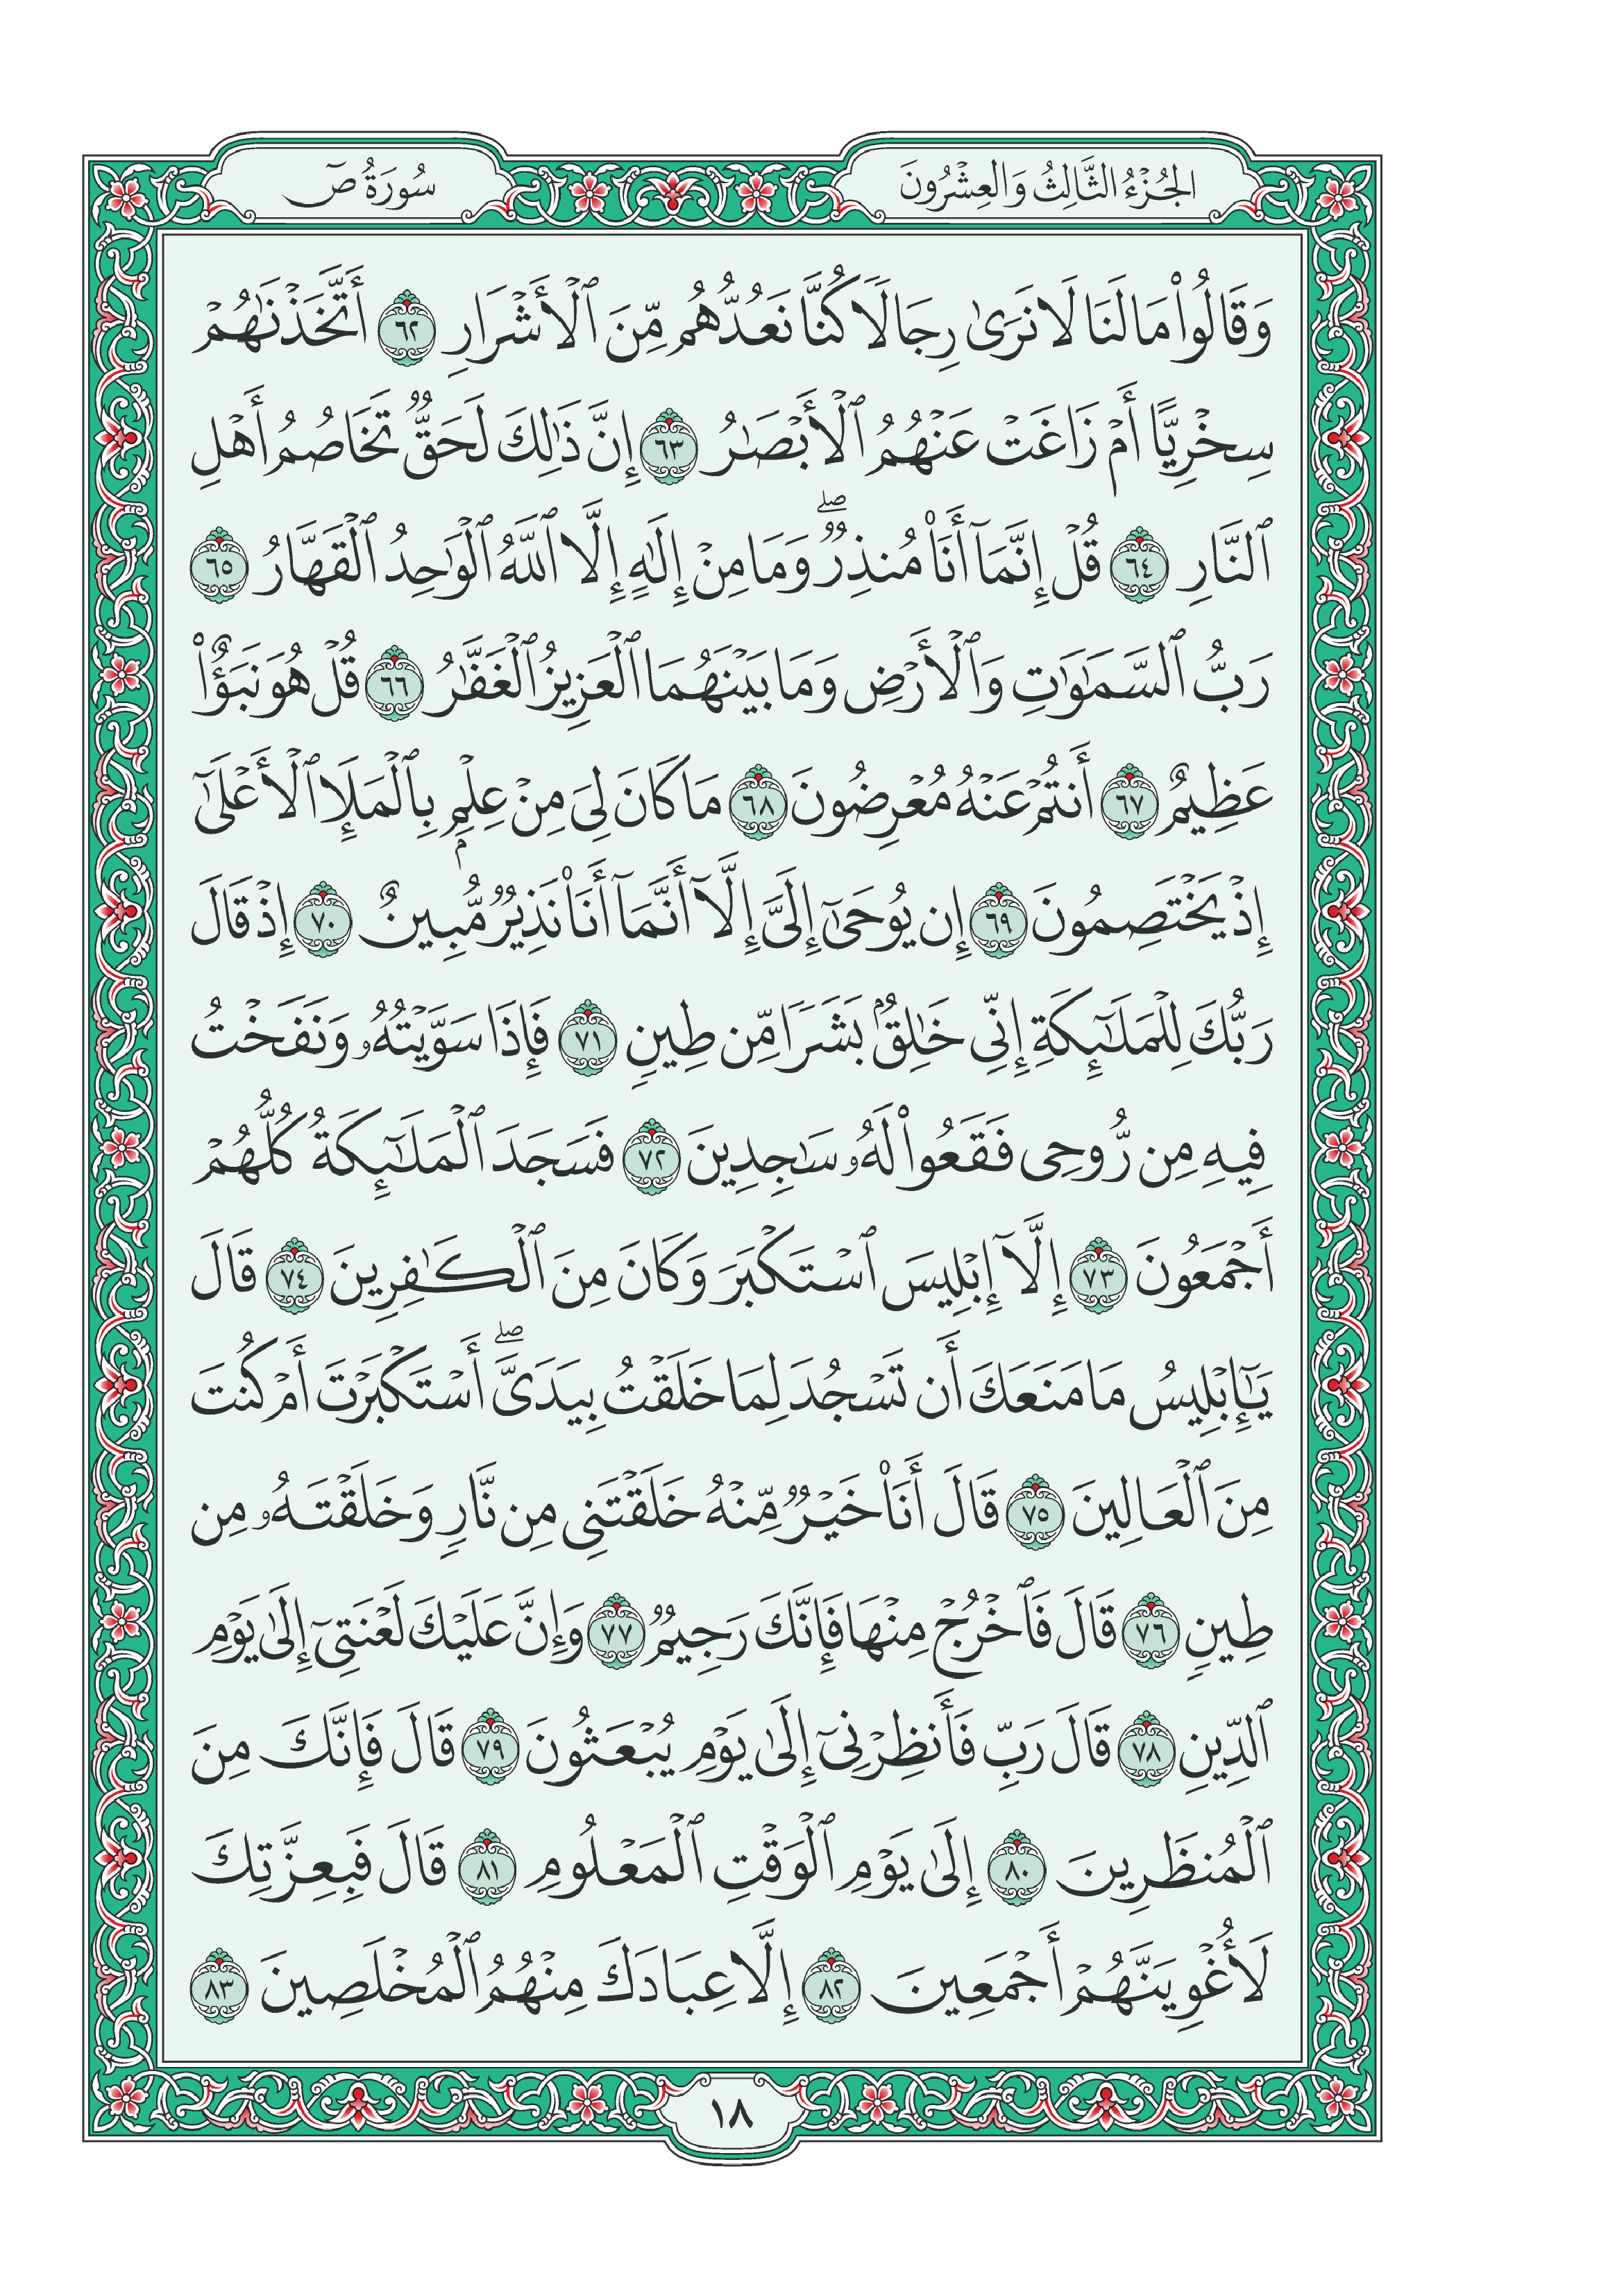 الجُزْءُ الثَّالِثُ وَالعِشْرُونَ
سُورَةُ صٓ
وَقَالُوا۟ مَا لَنَا لَا نَرَىٰ رِجَالًا كُنَّا نَعُدُّهُم مِّنَ ٱلْأَشْرَارِ ٦٢ أَتَّخَذْنَـٰهُمْ
سِخْرِيًّا أَمْ زَاغَتْ عَنْهُمُ ٱلْأَبْصَـٰرُ ٦٣ إِنَّ ذَٰلِكَ لَحَقٌّ تَخَاصُمُ أَهْلِ
ٱلنَّارِ ٦٤ قُلْ إِنَّمَآ أَنَا۠ مُنذِرٌ ۖ وَمَا مِنْ إِلَـٰهٍ إِلَّا ٱللَّهُ ٱلْوَٰحِدُ ٱلْقَهَّارُ ٦٥
رَبُّ ٱلسَّمَـٰوَٰتِ وَٱلْأَرْضِ وَمَا بَيْنَهُمَا ٱلْعَزِيزُ ٱلْغَفَّـٰرُ ٦٦ قُلْ هُوَ نَبَؤٌا۟
عَظِيمٌ ٦٧ أَنتُمْ عَنْهُ مُعْرِضُونَ ٦٨ مَا كَانَ لِىَ مِنْ عِلْمٍۭ بِٱلْمَلَإِ ٱلْأَعْلَىٰٓ
إِذْ يَخْتَصِمُونَ ٦٩ إِن يُوحَىٰٓ إِلَىَّ إِلَّآ أَنَّمَآ أَنَا۠ نَذِيرٌ مُّبِينٌ ٧٠ إِذْ قَالَ
رَبُّكَ لِلْمَلَـٰٓئِكَةِ إِنِّى خَـٰلِقٌۢ بَشَرًا مِّن طِينٍ ٧١ فَإِذَا سَوَّيْتُهُۥ وَنَفَخْتُ
فِيهِ مِن رُّوحِى فَقَعُوا۟ لَهُۥ سَـٰجِدِينَ ٧٢ فَسَجَدَ ٱلْمَلَـٰٓئِكَةُ كُلُّهُمْ
أَجْمَعُونَ ٧٣ إِلَّآ إِبْلِيسَ ٱسْتَكْبَرَ وَكَانَ مِنَ ٱلْكَـٰفِرِينَ ٧٤ قَالَ
يَـٰٓإِبْلِيسُ مَا مَنَعَكَ أَن تَسْجُدَ لِمَا خَلَقْتُ بِيَدَىَّ ۖ أَسْتَكْبَرْتَ أَمْ كُنتَ
مِنَ ٱلْعَالِينَ ٧٥ قَالَ أَنَا۠ خَيْرٌ مِّنْهُ خَلَقْتَنِى مِن نَّارٍ وَخَلَقْتَهُۥ مِن
طِينٍ ٧٦ قَالَ فَٱخْرُجْ مِنْهَا فَإِنَّكَ رَجِيمٌ ٧٧ وَإِنَّ عَلَيْكَ لَعْنَتِىٓ إِلَىٰ يَوْمِ
ٱلدِّينِ ٧٨ قَالَ رَبِّ فَأَنظِرْنِىٓ إِلَىٰ يَوْمِ يُبْعَثُونَ ٧٩ قَالَ فَإِنَّكَ مِنَ
ٱلْمُنظَرِينَ ٨٠ إِلَىٰ يَوْمِ ٱلْوَقْتِ ٱلْمَعْلُومِ ٨١ قَالَ فَبِعِزَّتِكَ
لَأُغْوِيَنَّهُمْ أَجْمَعِينَ ٨٢ إِلَّا عِبَادَكَ مِنْهُمُ ٱلْمُخْلَصِينَ ٨٣
١٨